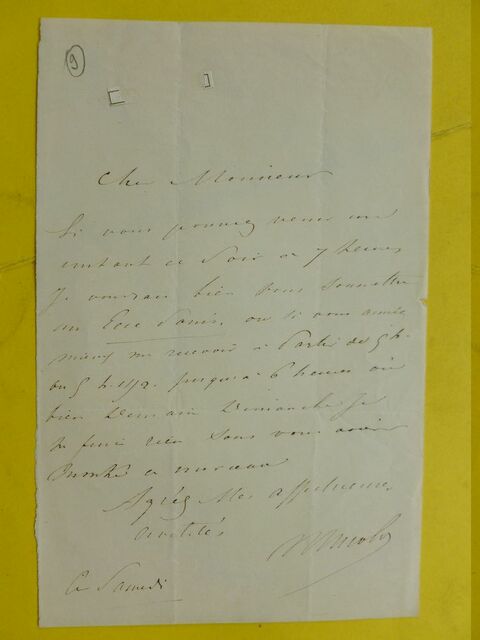 9
Cher Monsieur
Si vous pouvez venir un
instant ce Soir a 7 heures
Je voudrais bien vous Soumettre
un Ecce Panis, ou si vous aimez
mieux me recevoir à Partir de 5 h.
ou 5 h. 1/2 jusqu'à 6 heures ou
bien Demain Dimanche Je
ne ferai rien Sans vous avoir
montré ce morceau
Agréez Mes affectueuses
amitiés
Ce Samedi